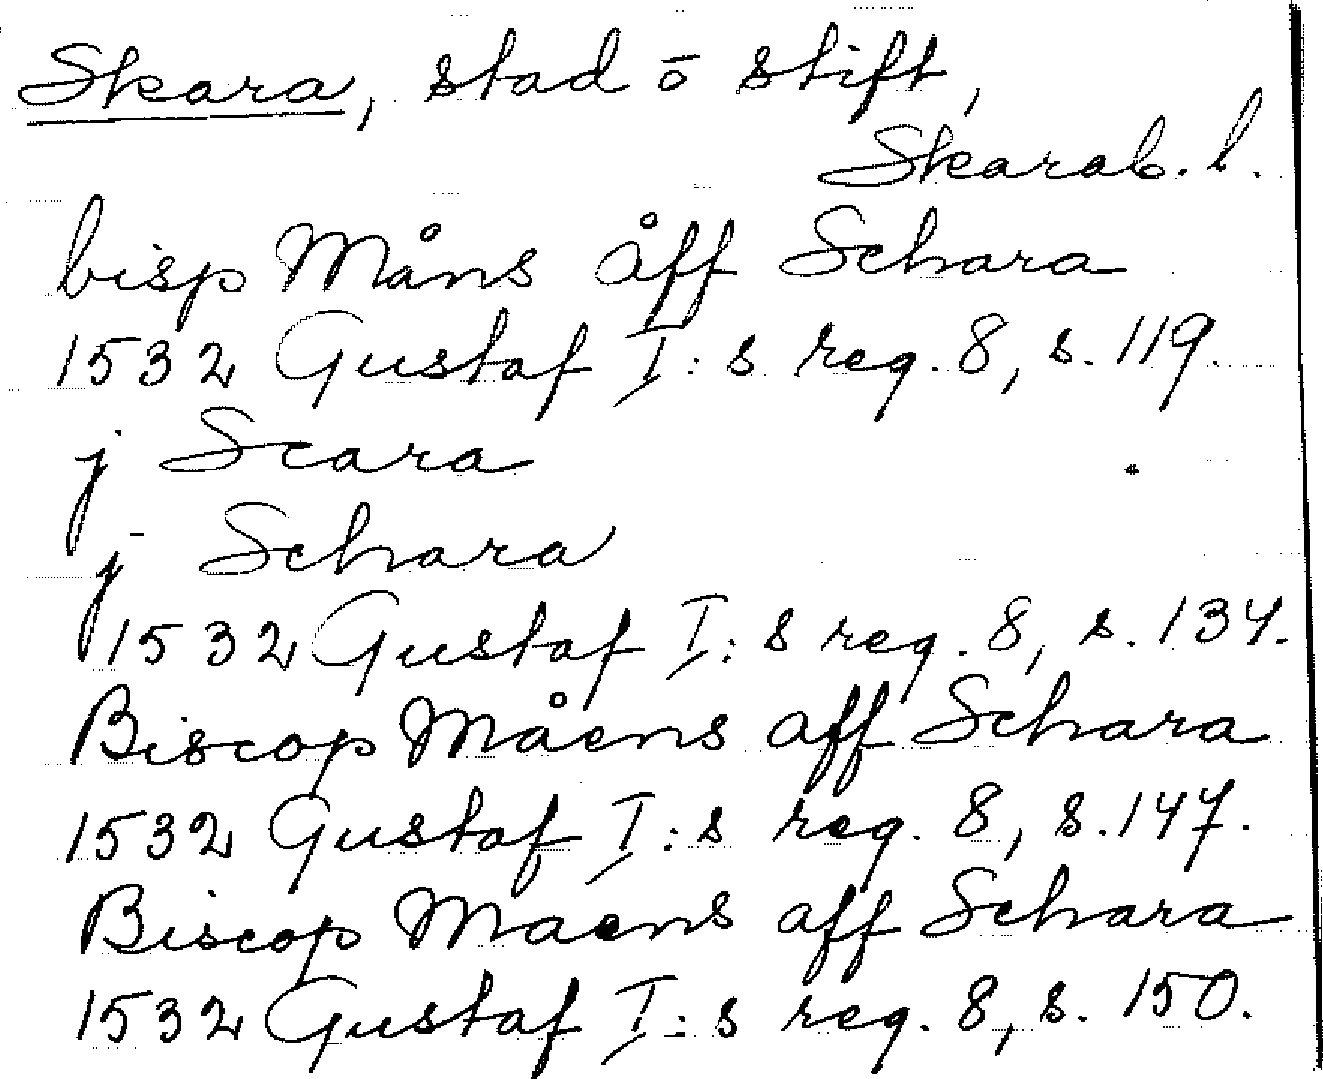 Skara, stad ō stift,
Skarab. l.
bisp Måns åff Schara
1532 Gustaf I:s reg. 8, s. 119.
j Scara
j Schara
1532 Gustaf I:s reg. 8, s. 134.
Biscop Måens aff Schara
1532 Gustaf I:s reg. 8, s. 147.
Biscop Maens aff Schara
1532 Gustaf I:s reg. 8, s. 150.